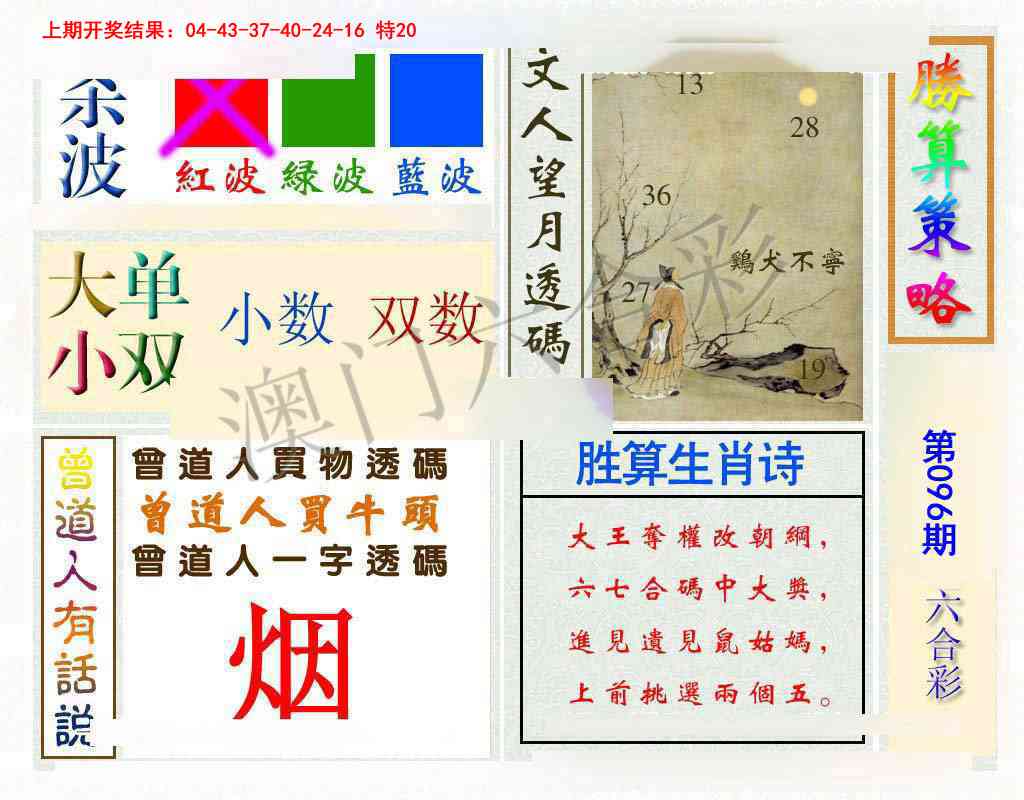 上期开奖结果：04-43-37-40-24-16 特20
杀波
紅波 緑波 藍波
大单
小双
小数 双数
文人望月透碼
13
28
36
鷄犬不寧
27
19
澳门六合彩
勝算策略
第096期
六合彩
曾道人有話説
曾道人買物透碼
曾道人買牛頭
曾道人一字透碼
烟
胜算生肖诗
大王奪權改朝綱，
六七合碼中大獎，
進見遺見鼠姑媽，
上前挑選兩個五。